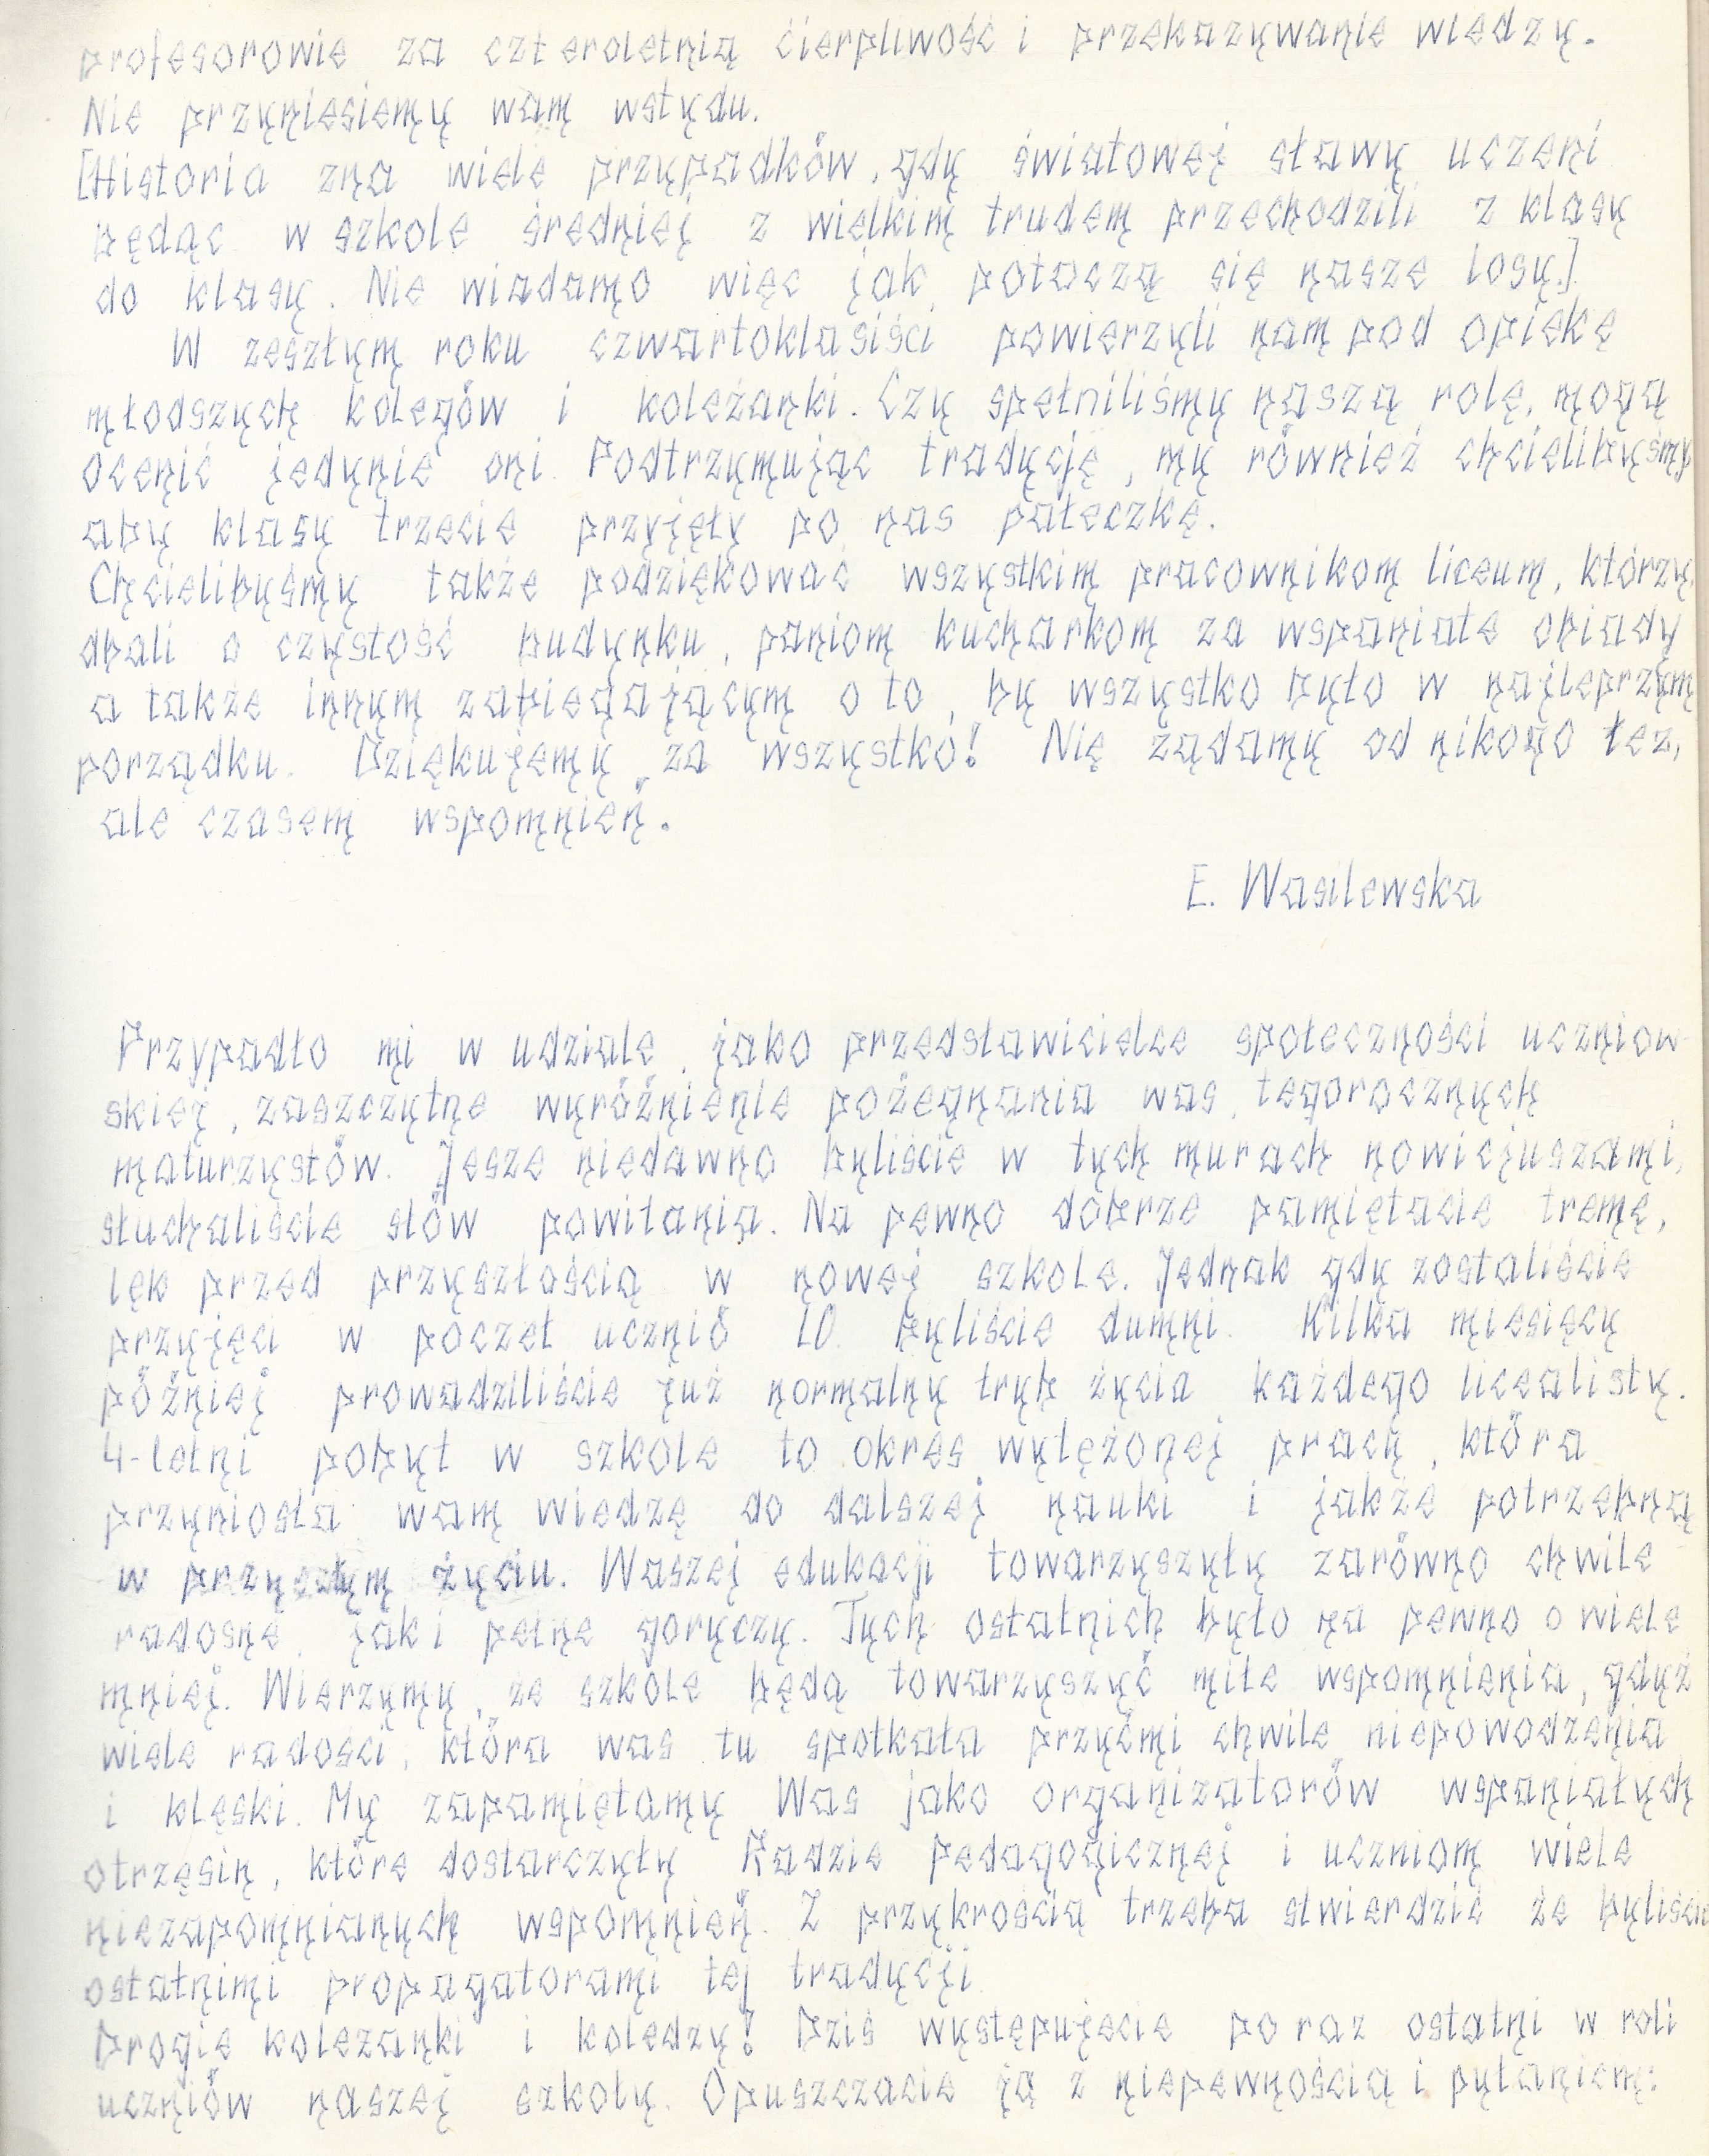 profesorowie za czteroletnią cierpliwość i przekazywanie wiedzy.
Nie przyniesiemy wam wstydu.
[Historia zna wiele przypadków, gdy światowej sławy uczeni
będąc w szkole średniej z wielkim trudem przechodzili z klasy
do klasy. Nie wiadamo więc jak potoczą się nasze losy.]
W zeszłym roku czwartoklasiści powierzyli nam pod opiekę
młodszych kolegów i koleżanki. Czy spełniliśmy naszą rolę, mogą
ocenić jedynie oni. Podtrzymując tradycję, my również chcielibyśmy
aby klasy trzecie przyjęły po nas pałeczkę.
Chcielibyśmy także podziękować wszystkim pracownikom liceum, którzy
dbali o czystość budynku, paniom kucharkom za wspaniałe obiady
a także innym zabiegającym o to, by wszystko było w najleprzym
porządku. Dziękujemy za wszystko! Nie żądamy od nikogo łez,
ale czasem wspomnień.
E. Wasilewska
Przypadło mi w udziale, jako przedstawicielce społeczności uczniow-
skiej, zaszczytne wyróżnienie pożegnania was, tegorocznych
maturzystów. Jesze niedawno byliście w tych murach nowicjuszami,
słuchaliście słów powitania. Na pewno dobrze pamiętacie tremę,
lęk przed przyszłością w nowej szkole. Jednak gdy zostaliście
przyjęci w poczet ucznió LO. byliście dumni. Kilka miesięcy
póżniej prowadziliście już normalny tryb życia każdego licealisty.
4-letni pobyt w szkole to okres wytężonej pracy, która
przyniosła wam wiedzę do dalszej nauki i jakże potrzebną
w przyszłym życiu. Waszej edukacji towarzyszyły zarówno chwile
radosne, jak i pełne goryczy. Tych ostatnich było na pewno o wiele
mniej. Wierzymy, że szkole będą towarzyszyć miłe wspomnienia, gdyż
wiele radości, która was tu spotkała przyćmi chwile niepowodzenia
i klęski. My zapamiętamy Was jako organizatorów wspaniałych
otrzęsin, które dostarczyły Radzie Pedagogicznej i uczniom wiele
niezapomnianych wspomnień. Z przykrością trzeba stwierdzić że byliście
ostatnimi propagatorami tej tradycji.
Drogie koleżanki i koledzy! Dziś występujecie po raz ostatni w roli
uczniów naszej szkoły. Opuszczacie ją z niepewnością i pytaniem: